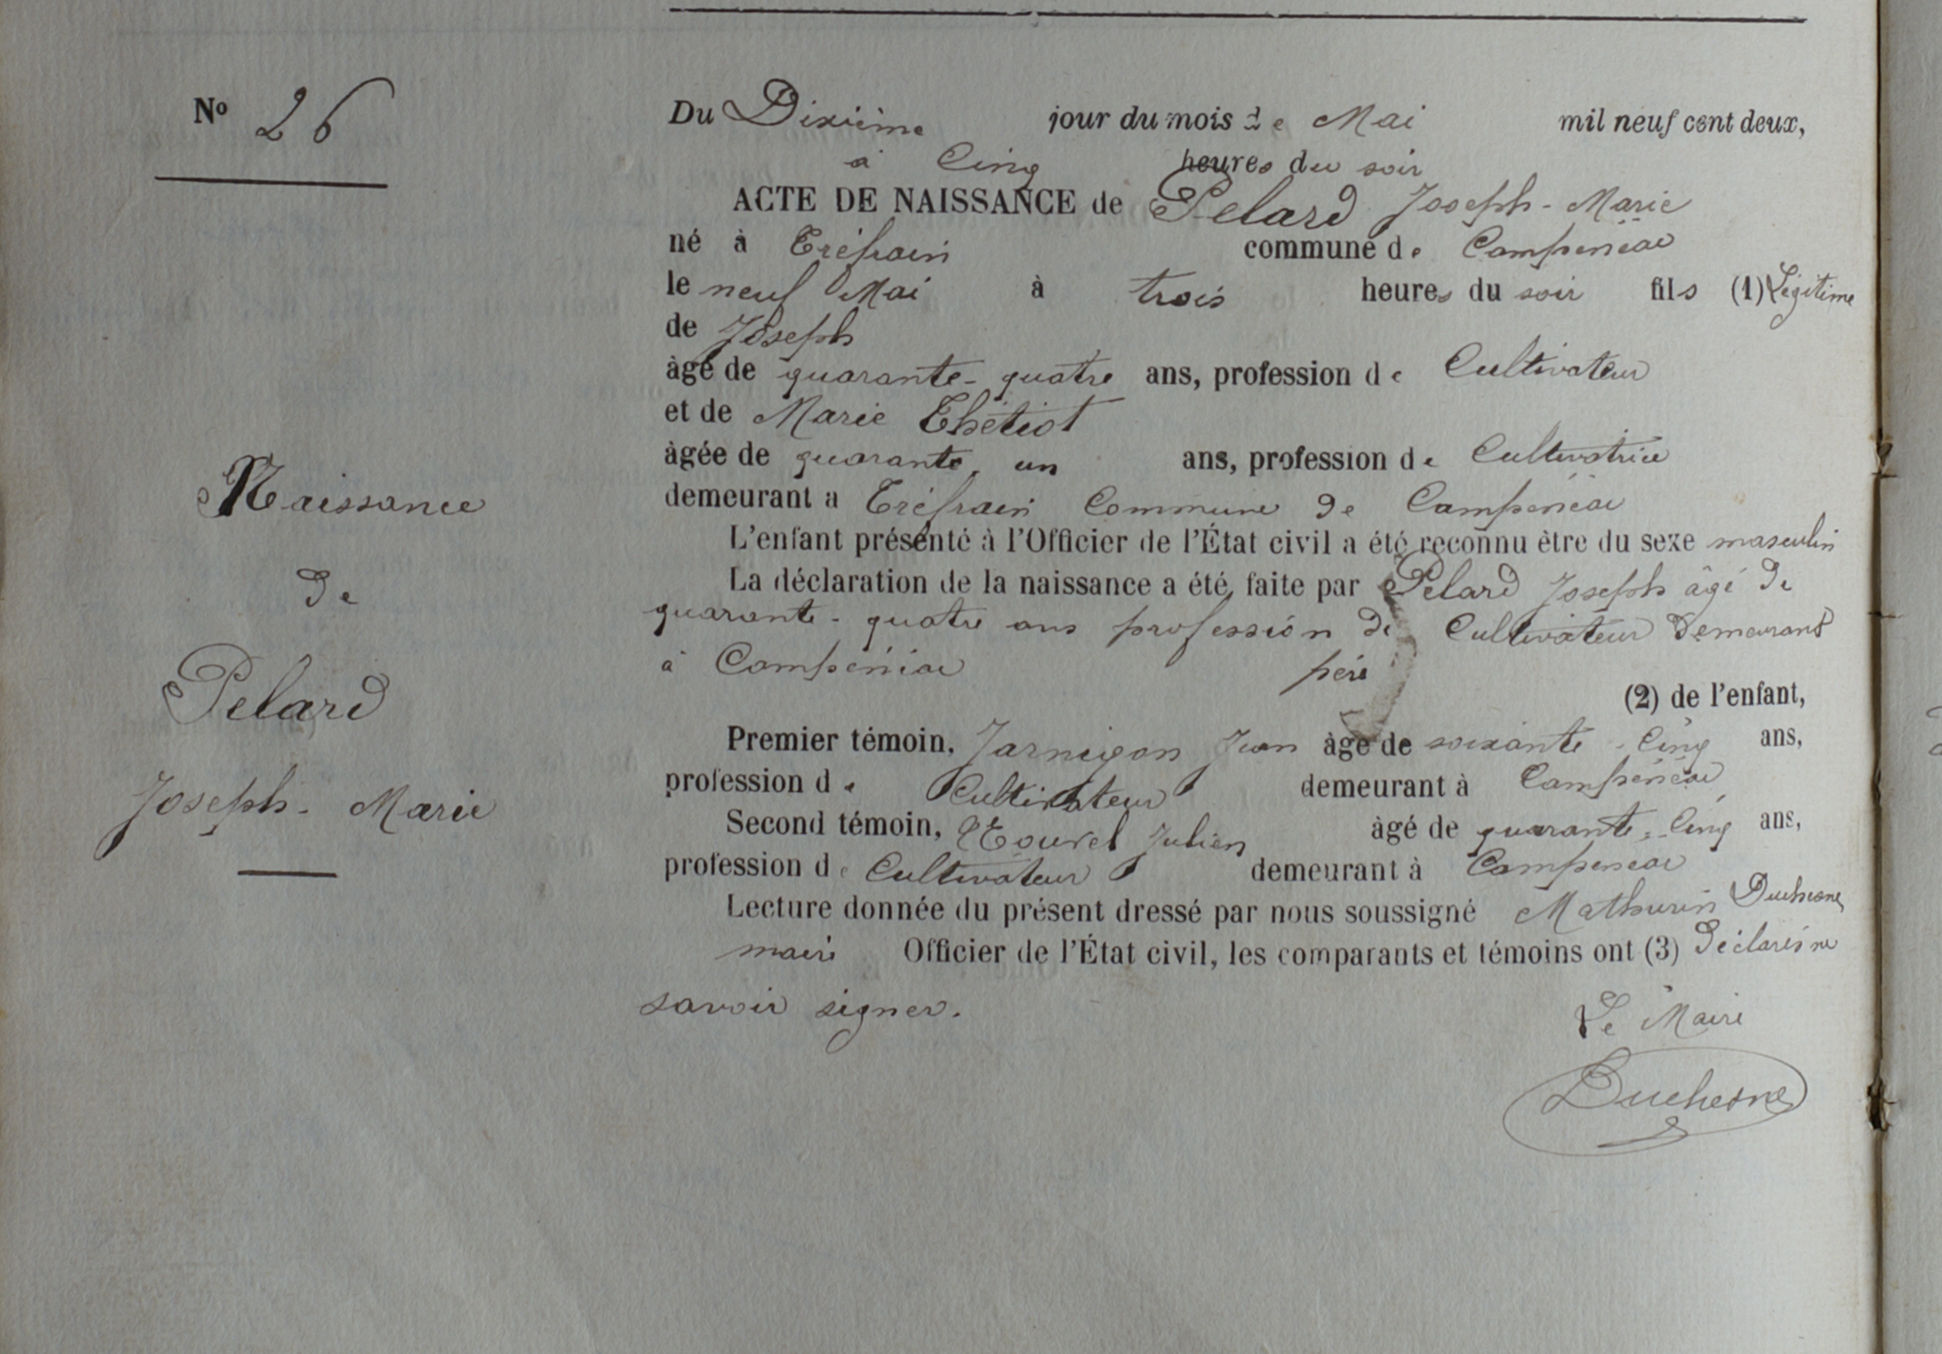 Nº 26
Du Dixième jour du mois de Mai mil neuf cent deux,
à Cinq heures du soir
ACTE DE NAISSANCE de Pelard Joseph-Marie
né à Tréfrain commune de Campénéac
le neuf Mai à trois heures du soir fils (1) Légitime
de Joseph
âgé de quarante-quatre ans, profession de Cultivateur
et de Marie Thétiot
âgée de quarante, un ans, profession de Cultivatrice
demeurant a Tréfrain Commune de Campénéac
L'enfant présenté à l'Officier de l'État civil a été reconnu être du sexe masculin
La déclaration de la naissance a été faite par Pelard Joseph âgé de
quarante-quatre ans profession de Cultivateur demeurant
à Campénéac père
(2) de l'enfant,
Premier témoin, Jarnigon Jean âgé de soixante-cinq ans,
profession de Cultivateur demeurant à Campénéac
Second témoin, Nouvel Julien âgé de quarante-cinq ans,
profession de Cultivateur demeurant à Campénéac
Lecture donnée du présent dressé par nous soussigné Mathurin Duchesne
maire Officier de l'État civil, les comparants et témoins ont (3) déclaré ne
savoir signer.
Le Maire
Duchesne
Naissance
de
Pelard
Joseph-Marie